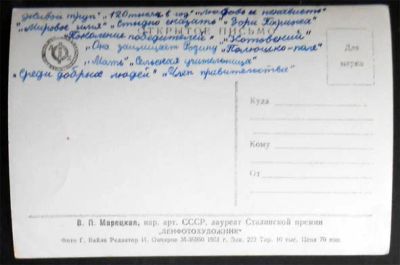 "Живой труп", "120 тысяч в год", "Любовь и ненависть"
"Мировое имя" "Стыдно сказать" "Зори Парижа"
ОТКРЫТОЕ ПИСЬМО
"Поколение победителей" "Котовский"
"Она защищает Родину" "Полюшко-поле"
"Мать" "Сельская учительница"
"Среди добрых людей" "Член правительства"
Для
марки
Куда
Кому
От
В. П. Марецкая, нар. арт. СССР, лауреат Сталинской премии
"ЛЕНФОТОХУДОЖНИК"
Фото Г. Вайля Редактор И. 1951 г. Зак. 222 Тир. 10 тыс. Цена 70 коп.